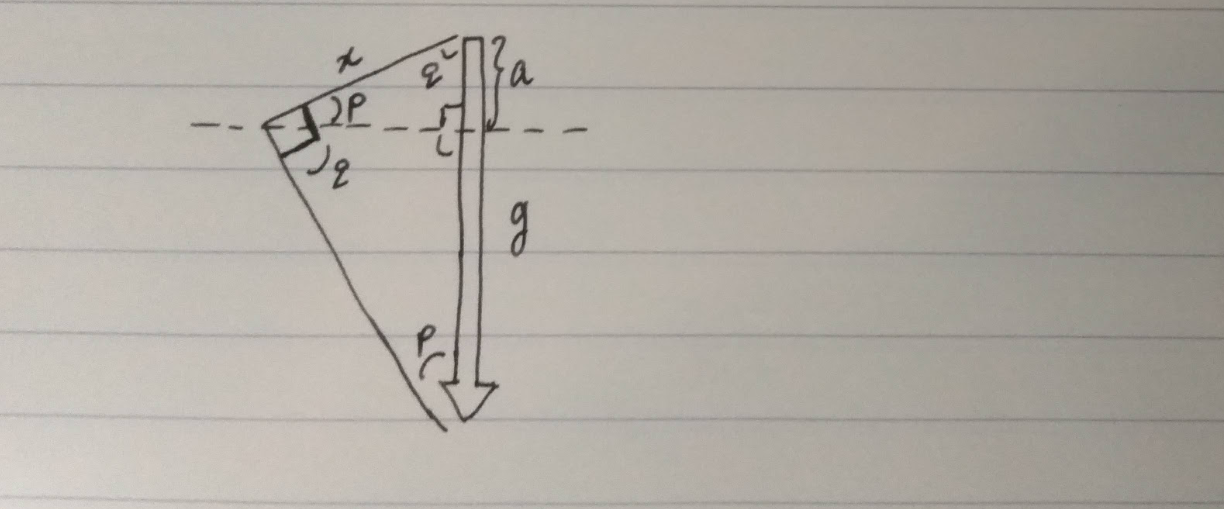 x
q
a
p
q
g
p